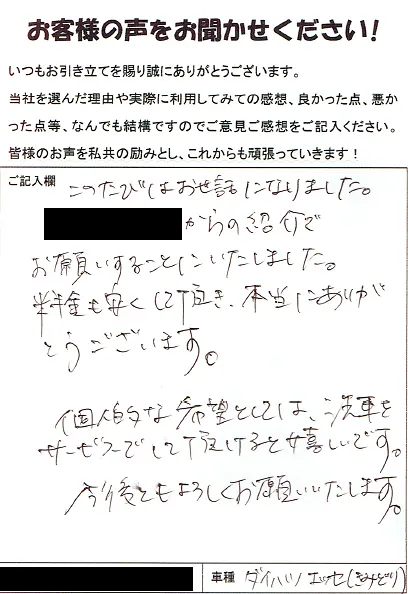 お客様の声をお聞かせください!
いつもお引き立てを賜り誠にありがとうございます。
当社を選んだ理由や実際に利用してみての感想、良かった点、悪か
った点等、なんでも結構ですのでご意見ご感想をご記入ください。
皆様のお声を私共の励みとし、これからも頑張っていきます!
ご記入欄
このたびはお世話になりました。
からの紹介で
お願いすることにいたしました。
料金も安くして頂き、本当にありが
とうございます。
個人的な希望としては、洗車を
サービスでして頂けると嬉しいです。
今後ともよろしくお願いいたします。
車種 ダイハツ エッセ(きみどり)